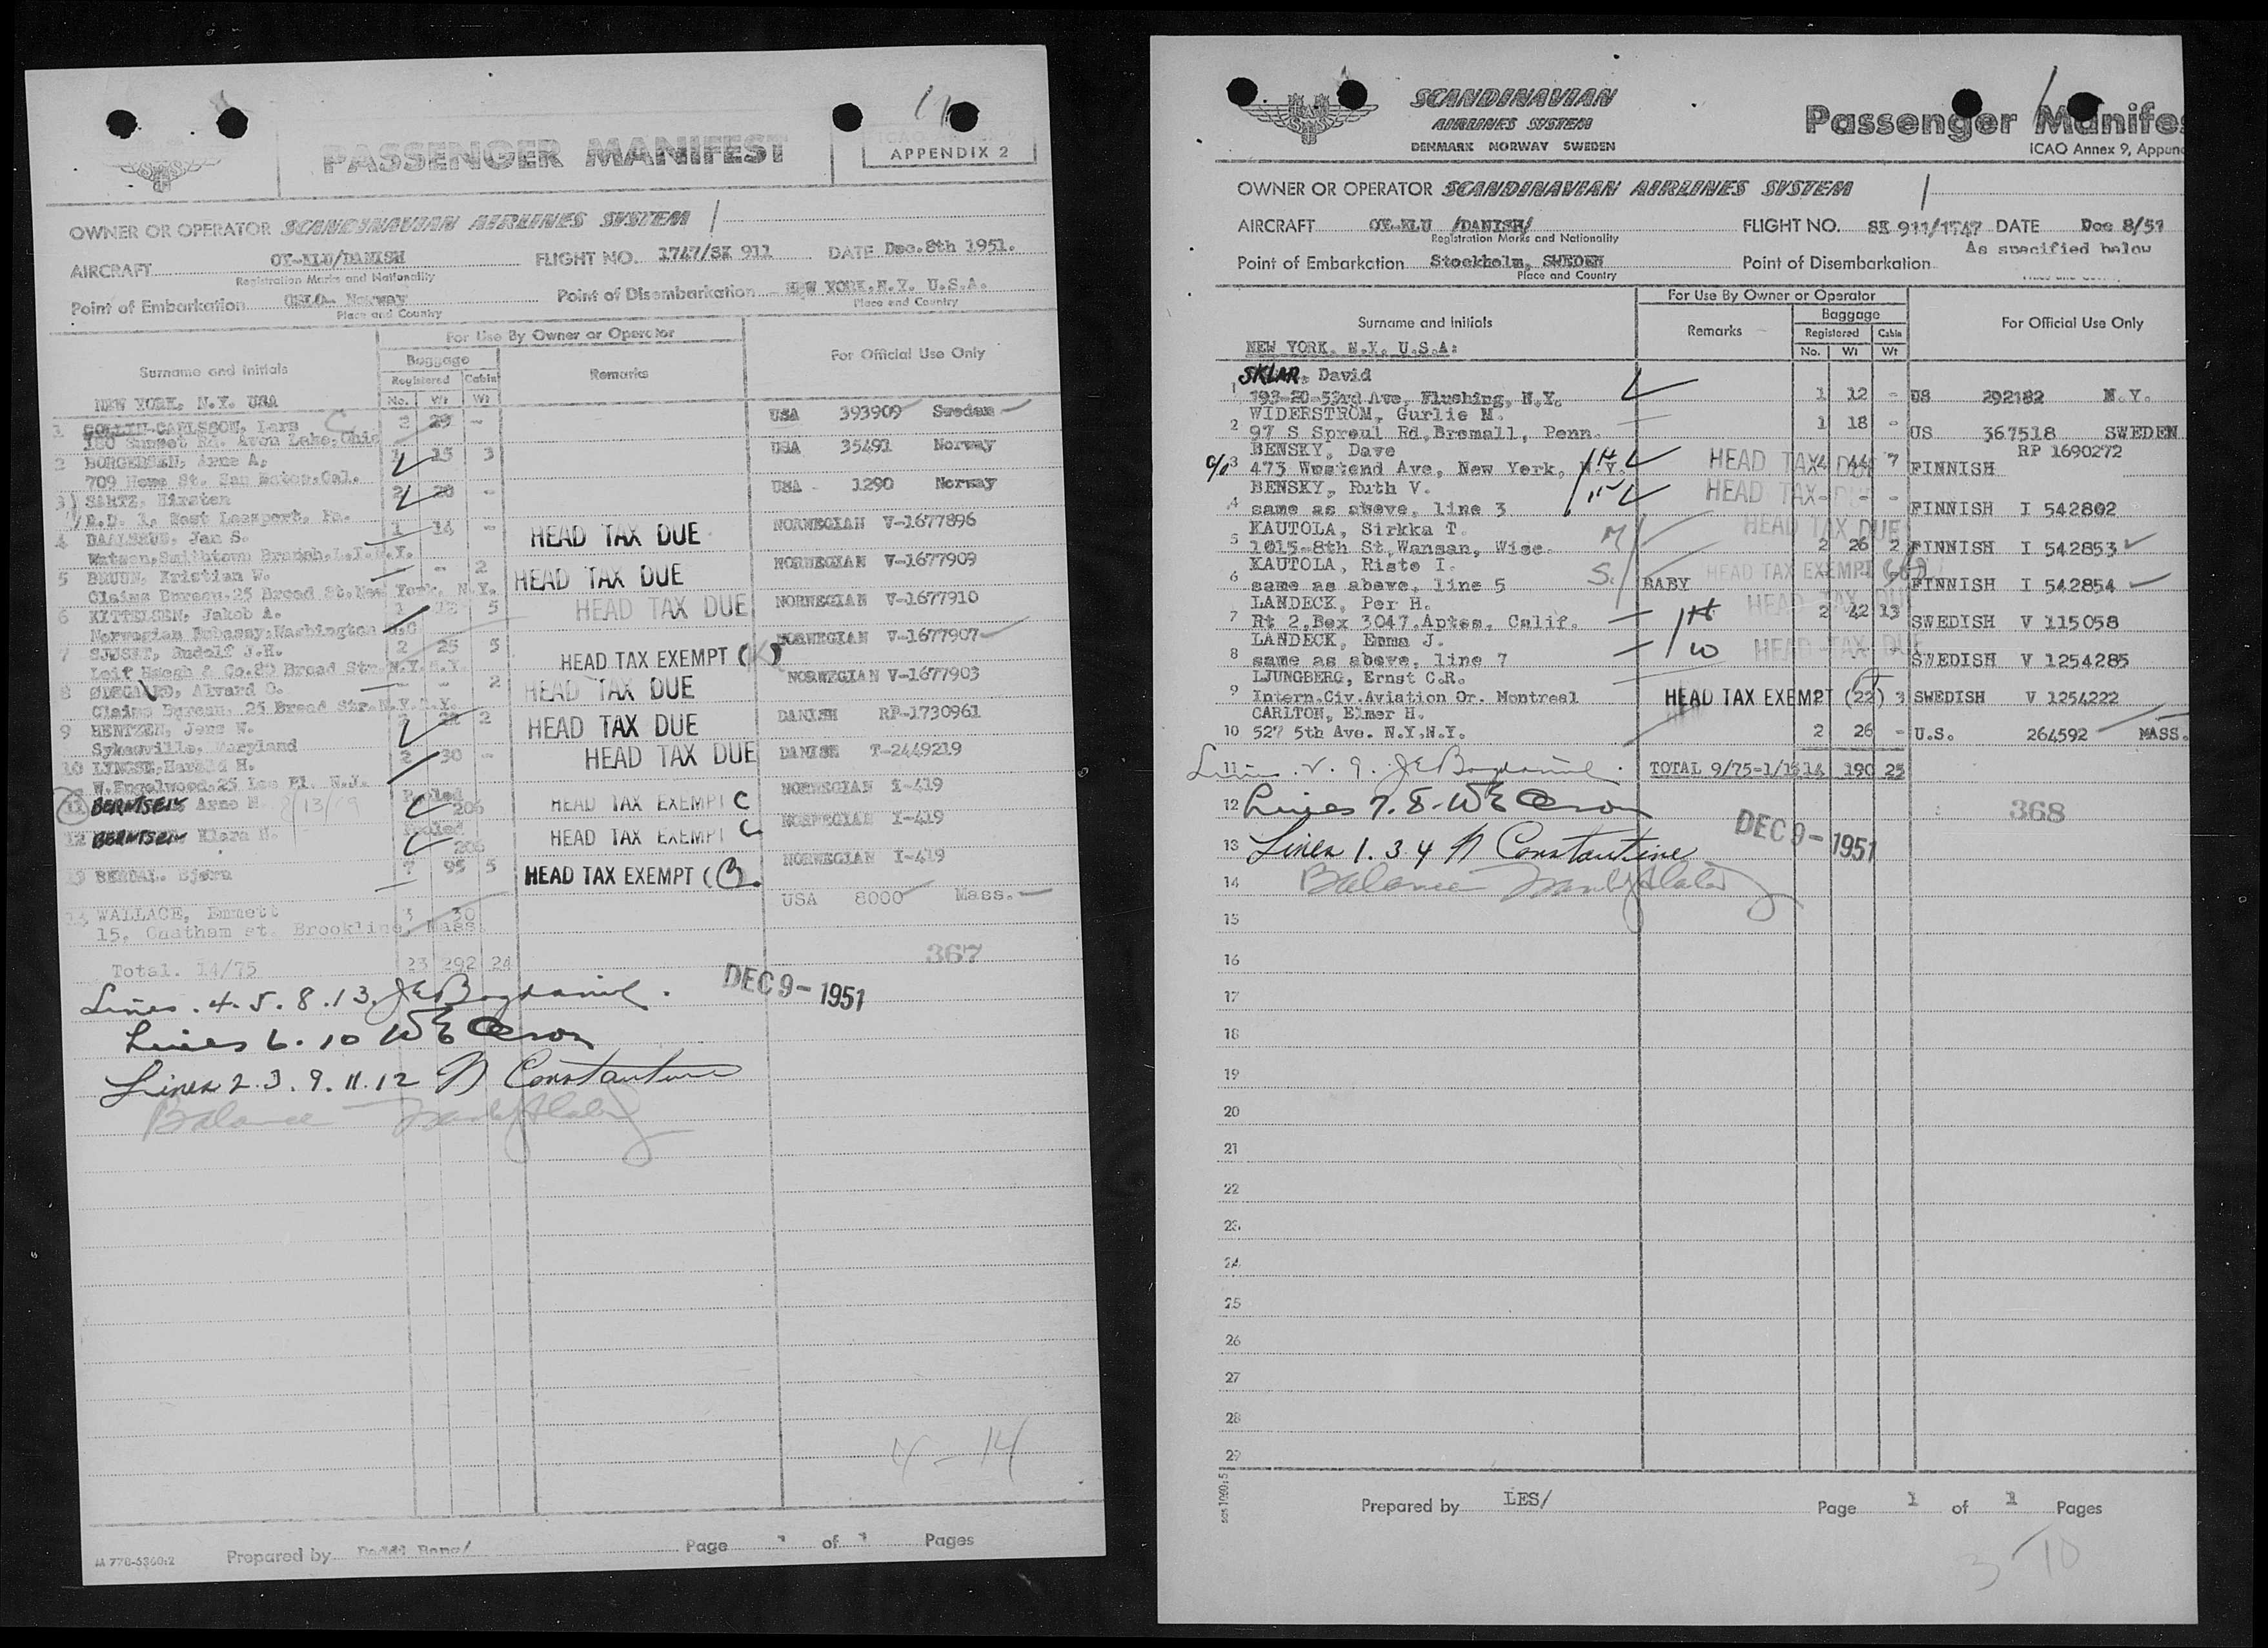 PASSENGER MANIFEST
APPENDIX 2
OWNER OR OPERATOR SCANDINAVIAN AIRLINES SYSTEM
AIRCRAFT OY-KLU/DANISH FLIGHT NO. 1747/SK 911 DATE Dec.8th 1951.
Registration Marks and Nationality
Point of Embarkation OSLO- Norway Point of Disembarkation NEW YORK.N.Y. U.S.A.
Place and Country Place and Country
For Use By Owner or Operator
Surname and Initials Baggage Remarks For Official Use Only
Registered Cabin
No. Wt Wt
NEW YORK, N.Y. USA
1 GOLLIN-CARLSSON, Lars 2 29 - USA 393909 Sweden
180 Sunset Rd. Avon Lake, Ohio
2 BORGERSEN, Arne A. 1 15 3 USA 35491 Norway
709 Howe St. San Mateo.Cal.
3 SARTZ, Kirsten 2 28 - USA - 1290 Norway
R.D. 1, West Leesport, Pa.
4 BAALSRUD, Jan S. 1 14 - HEAD TAX DUE NORWEGIAN V-1677896
Watson,Smithtown Branch.L.I.N.Y.
5 BRUUN, Kristian W. - - 2 HEAD TAX DUE NORWEGIAN V-1677909
Claims Bureau.25 Broad St.New York. N.Y.
6 KITTELSEN, Jakob A. 1 12 5 HEAD TAX DUE NORWEGIAN V-1677910
Norwegian Embassy.Washington D.C
7 SJUSET, Rudolf J.H. 2 25 5 HEAD TAX EXEMPT ( ) NORWEGIAN V-1677907
Leif Hoegh & Co.80 Broad Str.N.Y.N.Y.
8 ØDEGAARD, Alvard O. - - 2 HEAD TAX DUE NORWEGIAN V-1677903
Claims Bureau. 25 Broad Str.N.Y.N.Y.
9 BENTZEN, Jens W. 2 22 2 HEAD TAX DUE DANISH RP-1730961
Sykesville, Maryland
10 LYNGSE,Harald H. 2 30 - HEAD TAX DUE DANISH T-2449219
W.Engelwood.25 Lee Pl. N.J.
11 BERNTSEN Arne N. Pooled 206 HEAD TAX EXEMPT C NORWEGIAN I-419
12 BERNTSEN Klara H. Pooled 206 HEAD TAX EXEMPT C NORWEGIAN I-419
13 BERDAL. Bjørn 7 95 5 HEAD TAX EXEMPT (3. NORWEGIAN I-419
14 WALLACE, Emmett 3 30 USA 8000 Mass.
15, Chatham st. Brookline, Mass.
Total. 14/75 23 292 24 367
DEC 9- 1951
Lines. 4. 5. 8. 13. J E Bogdanil.
Lines 6. 10
Lines 2. 3. 9. 11. 12 N Constantine
Balance
4 - 14
M 770-5360:2 Prepared by Page 1 of 1 Pages
SCANDINAVIAN
AIRLINES SYSTEM
DENMARK NORWAY SWEDEN
Passenger Manifes
ICAO Annex 9, Appen
OWNER OR OPERATOR SCANDINAVIAN AIRLINES SYSTEM
AIRCRAFT OY-KLU /DANISH/ FLIGHT NO. SK 911/1747 DATE Dec 8/51
Registration Marks and Nationality
Point of Embarkation Stockholm, SWEDEN Point of Disembarkation As specified below
Place and Country
For Use By Owner or Operator
Surname and Initials Remarks Baggage For Official Use Only
Registered Cabin
No. Wt Wt
NEW YORK. N.Y. U.S.A:
SKLAR, David
1 193-20-53rd Ave, Flushing, N.Y. 1 12 - US 292182 N.Y.
WIDERSTRÖM, Gurlie M.
2 97 S Sproul Rd,Bromall, Penn. 1 18 - US 367518 SWEDEN
BENSKY, Dave RP 1690272
c/o 3 473 Westend Ave, New York, N.Y. HEAD TAX DUE 4 44 7 FINNISH
BENSKY, Ruth V.
4 same as above, line 3 HEAD TAX DUE - - - FINNISH I 542802
KAUTOLA, Sirkka T.
5 1015-8th St,Wausau, Wisc. HEAD TAX DUE 2 26 2 FINNISH I 542853
KAUTOLA, Risto I.
6 same as above, line 5 BABY HEAD TAX EXEMPT FINNISH I 542854
LANDECK, Per H.
7 Rt 2,Box 3047.Aptos, Calif. HEAD TAX DUE 2 42 13 SWEDISH V 115058
LANDECK, Emma J.
8 same as above, line 7 HEAD TAX DUE SWEDISH V 1254285
LJUNGBERG, Ernst C.R.
9 Intern.Civ.Aviation Or. Montreal HEAD TAX EXEMPT (22) 3 SWEDISH V 1254222
CARLTON, Elmer H.
10 527 5th Ave. N.Y.N.Y. 2 26 - U.S. 264592 MASS.
11 TOTAL 9/75-1/15 14 190 25
12 Lines 7. 8. 368
DEC 9- 1951
13 Lines 1. 3 4 N Constantine
14 Balance
15
16
17
18
19
20
21
22
23.
24
25
26
27
28
29
Prepared by LES/ Page 1 of 1 Pages
3 - 10